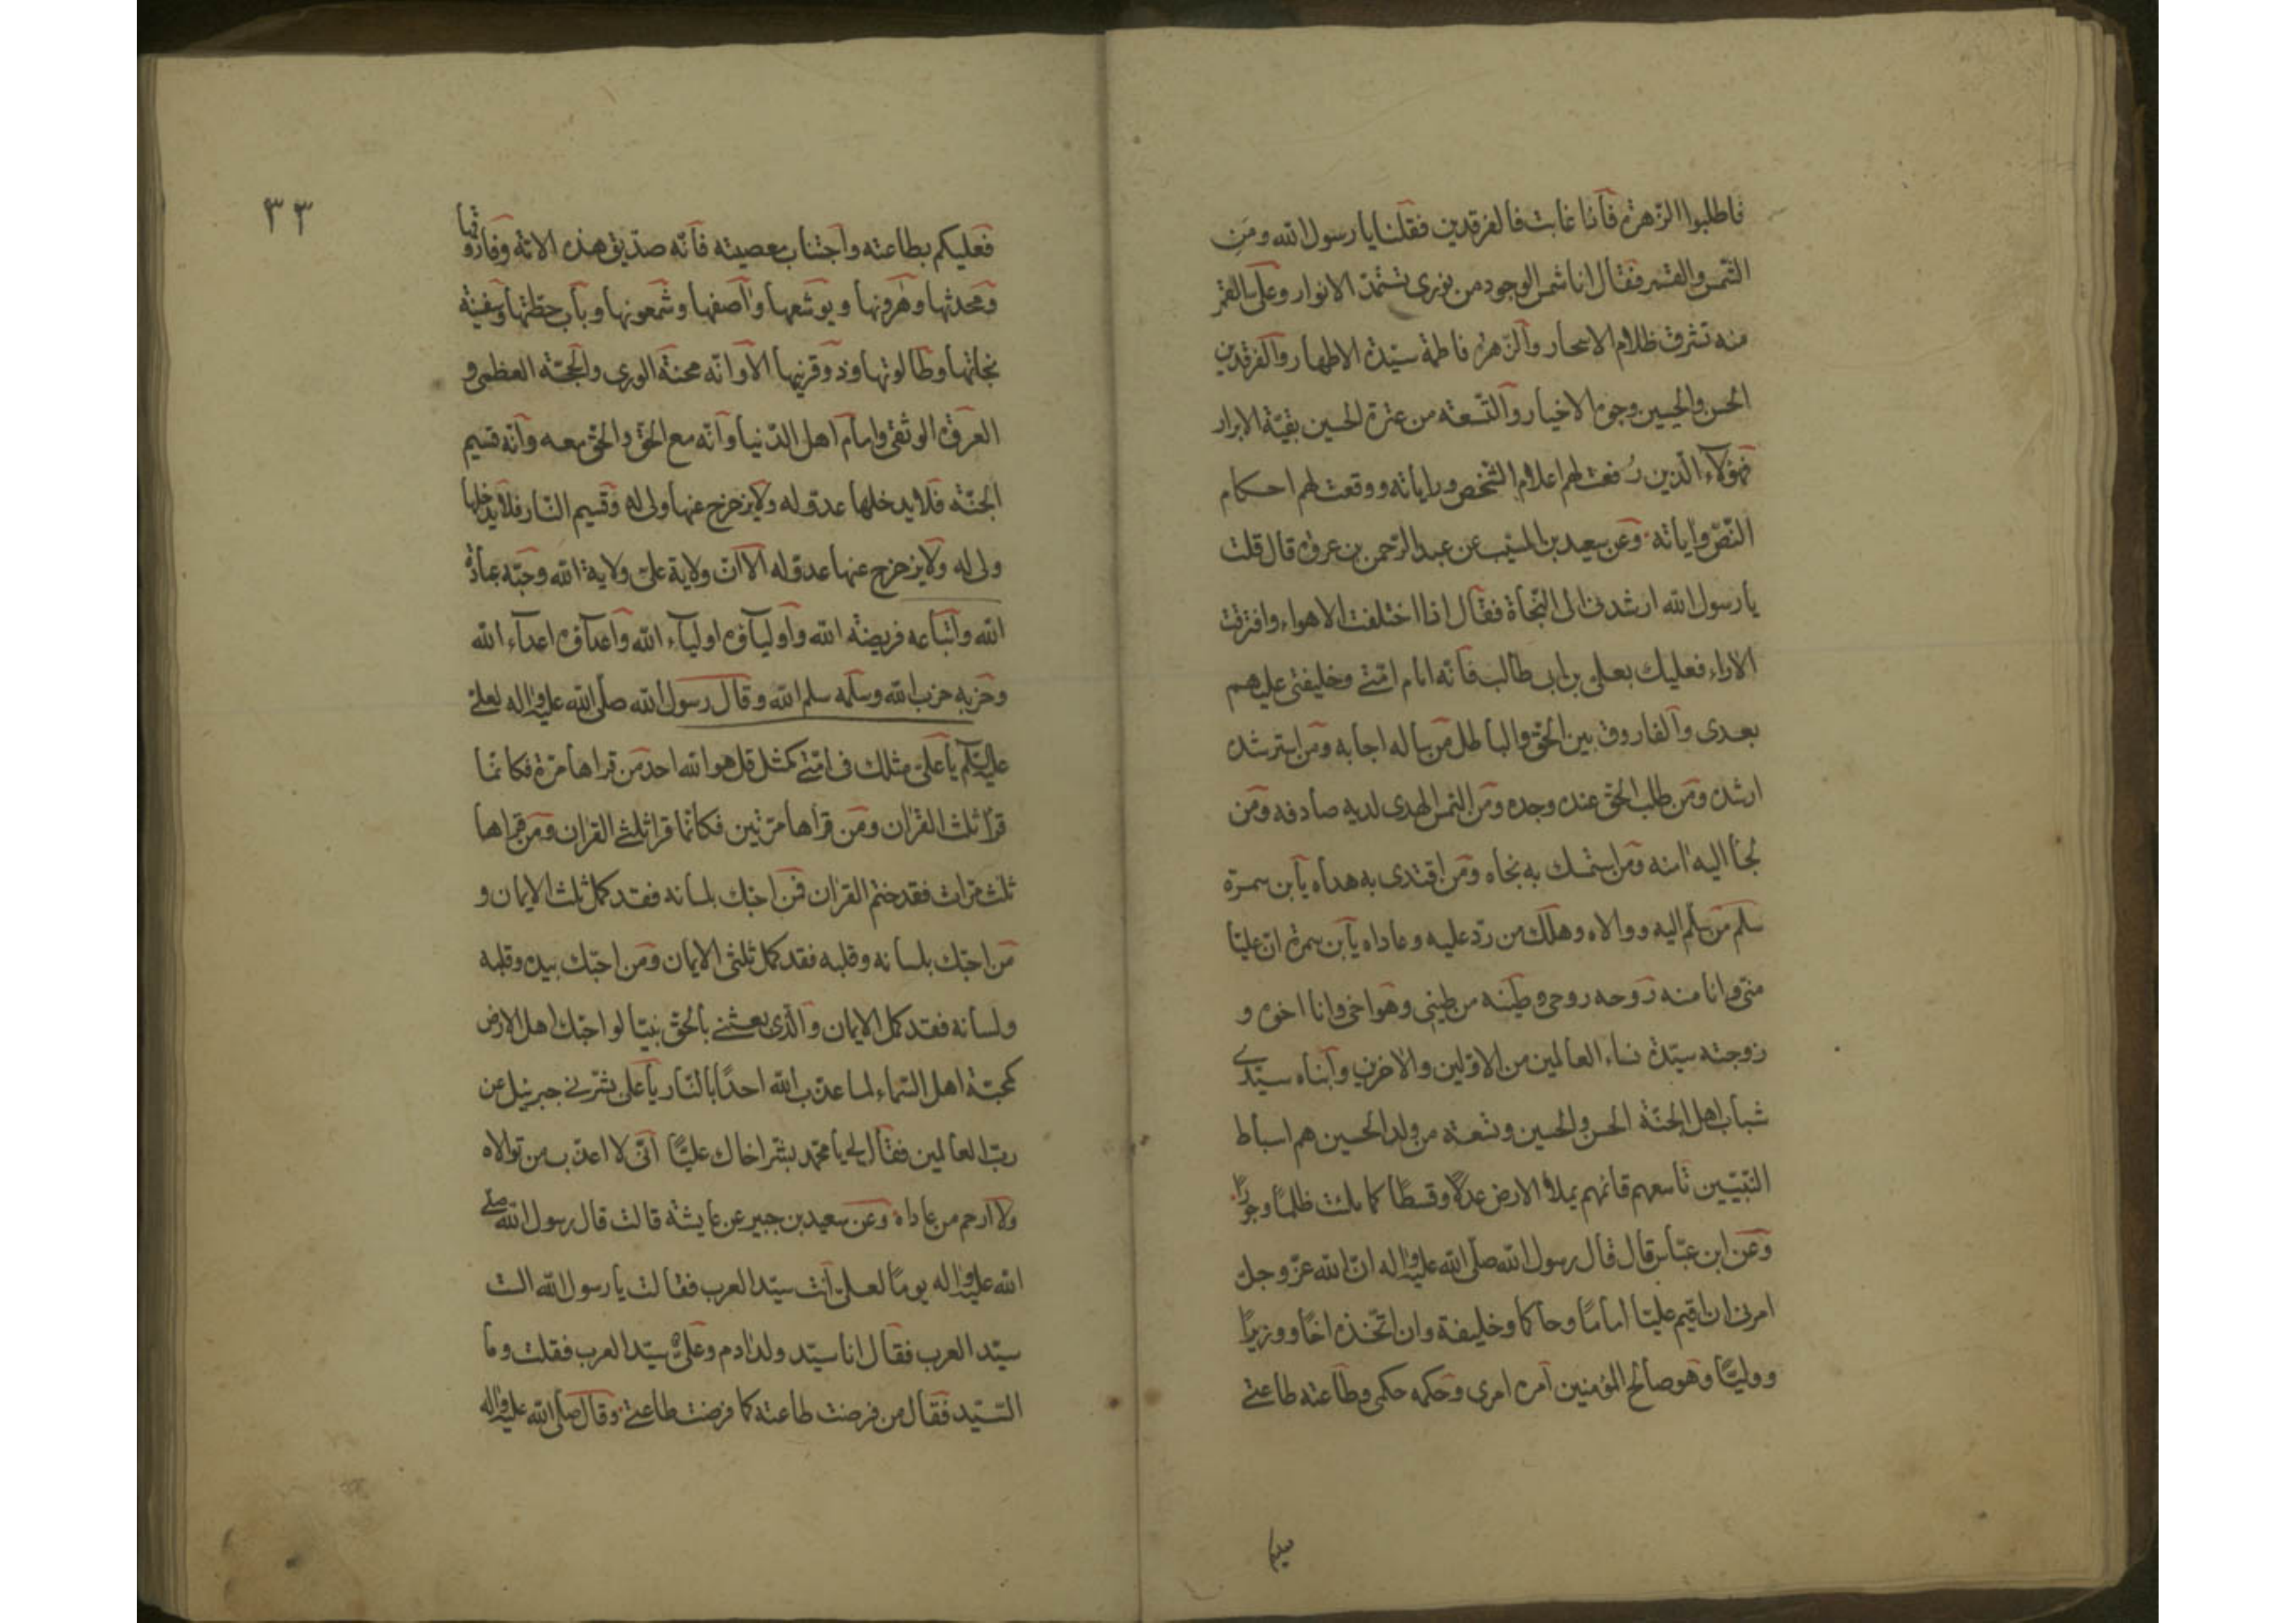 فاطلبوا الزهرة فاذا غابت فالفرقدين فقلنا يا رسول الله ومن
الشمس والقمر فقال انا شمس الوجود من نوري تستمد الانوار وعلى القمر
منه تشرق ظلام الاسحار والزهرة فاطمة سيدة الاطهار والفرقدين
الحسن والحسين وجوه الاخيار والتسعة من عترة الحسين بقية الابرار
فهؤلاء الذين رفعت لهم اعلام الشخص وراياته ووقعت لهم احكام
النص واياته وعن سعيد بن المسيب عن عبد الرحمن بن عوف قال قلت
يا رسول الله ارشدنى الى النجاة فقال اذا اختلفت الاهواء وافترقت
الاراء فعليك بعلى بن ابى طالب فانه امام امتى وخليفتى عليهم
بعدى والفاروق بين الحق والباطل من ساله اجابه ومن استرشده
ارشده ومن طلب الحق عنده وجده ومن التمس الهدى لديه صادفه ومن
لجأ اليه امنه ومن استمسك به نجاه ومن اقتدى به هداه يا بن سمرة
سلم من سلم اليه ووالاه وهلك من رد عليه وعاداه يا بن سمرة ان عليا
منى وانا منه روحه روحى وطينه من طينى وهو اخى وانا اخوه و
زوجته سيدة نساء العالمين من الاولين والاخرين وابناه سيدى
شباب اهل الجنة الحسن والحسين وتسعة من ولد الحسين هم اسباط
النبيين تاسعهم قائمهم يملأ الارض عدلا وقسطا كما ملئت ظلما وجورا
وعن ابن عباس قال قال رسول الله صلى الله عليه واله ان الله عز وجل
امرنى ان اقيم عليا اماما وحاكما وخليفة وان اتخذه اخا ووزيرا
ووليا وهو صالح المؤمنين امره امرى وحكمه حكمى وطاعته طاعتى
٣٣
فعليكم بطاعته واجتناب معصيته فانه صديق هذه الامة وفاروقها
ومحدثها وهرونها ويوشعها واصفها وشمعونها وباب حطتها وسفينة
نجاتها وطالوتها وذو قرنيها الا وانه محنة الورى والحجة العظمى و
العروة الوثقى وامام اهل الدنيا وانه مع الحق والحق معه وانه قسيم
الجنة فلا يدخلها عدو له ولا يزحزح عنها ولى له وقسيم النار فلا يدخلها
ولى له ولا يزحزح عنها عدو له الا ان ولاية على ولاية الله وحبه عبادة
الله واتباعه فريضة الله واولياؤه اولياء الله واعداؤه اعداء الله
وحزبه حزب الله وسلمه سلم الله وقال رسول الله صلى الله عليه واله لعلى
عليه السلام يا على مثلك فى امتى كمثل قل هو الله احد من قراها مرة فكانما
قرا ثلث القران ومن قراها مرتين فكانما قرا ثلثى القران ومن قراها
ثلث مرات فقد ختم القران فمن احبك بلسانه فقد كمل ثلث الايمان و
من احبك بلسانه وقلبه فقد كمل ثلثى الايمان ومن احبك بيده وقلبه
ولسانه فقد كمل الايمان والذى بعثنى بالحق نبيا لو احبك اهل الارض
كمحبة اهل السماء لما عذب الله احدا بالنار يا على بشرنى جبرئيل عن
رب العالمين فقال لى يا محمد بشر اخاك عليا انى لا اعذب من تولاه
ولا ارحم من عاداه وعن سعيد بن جبير عن عايشة قالت قال رسول الله صلى
الله عليه واله يوما لعلى انت سيد العرب فقالت يا رسول الله الست
سيد العرب فقال انا سيد ولد ادم وعلى سيد العرب فقلت وما
السيد فقال من فرضت طاعته كما فرضت طاعتى وقال صلى الله عليه واله